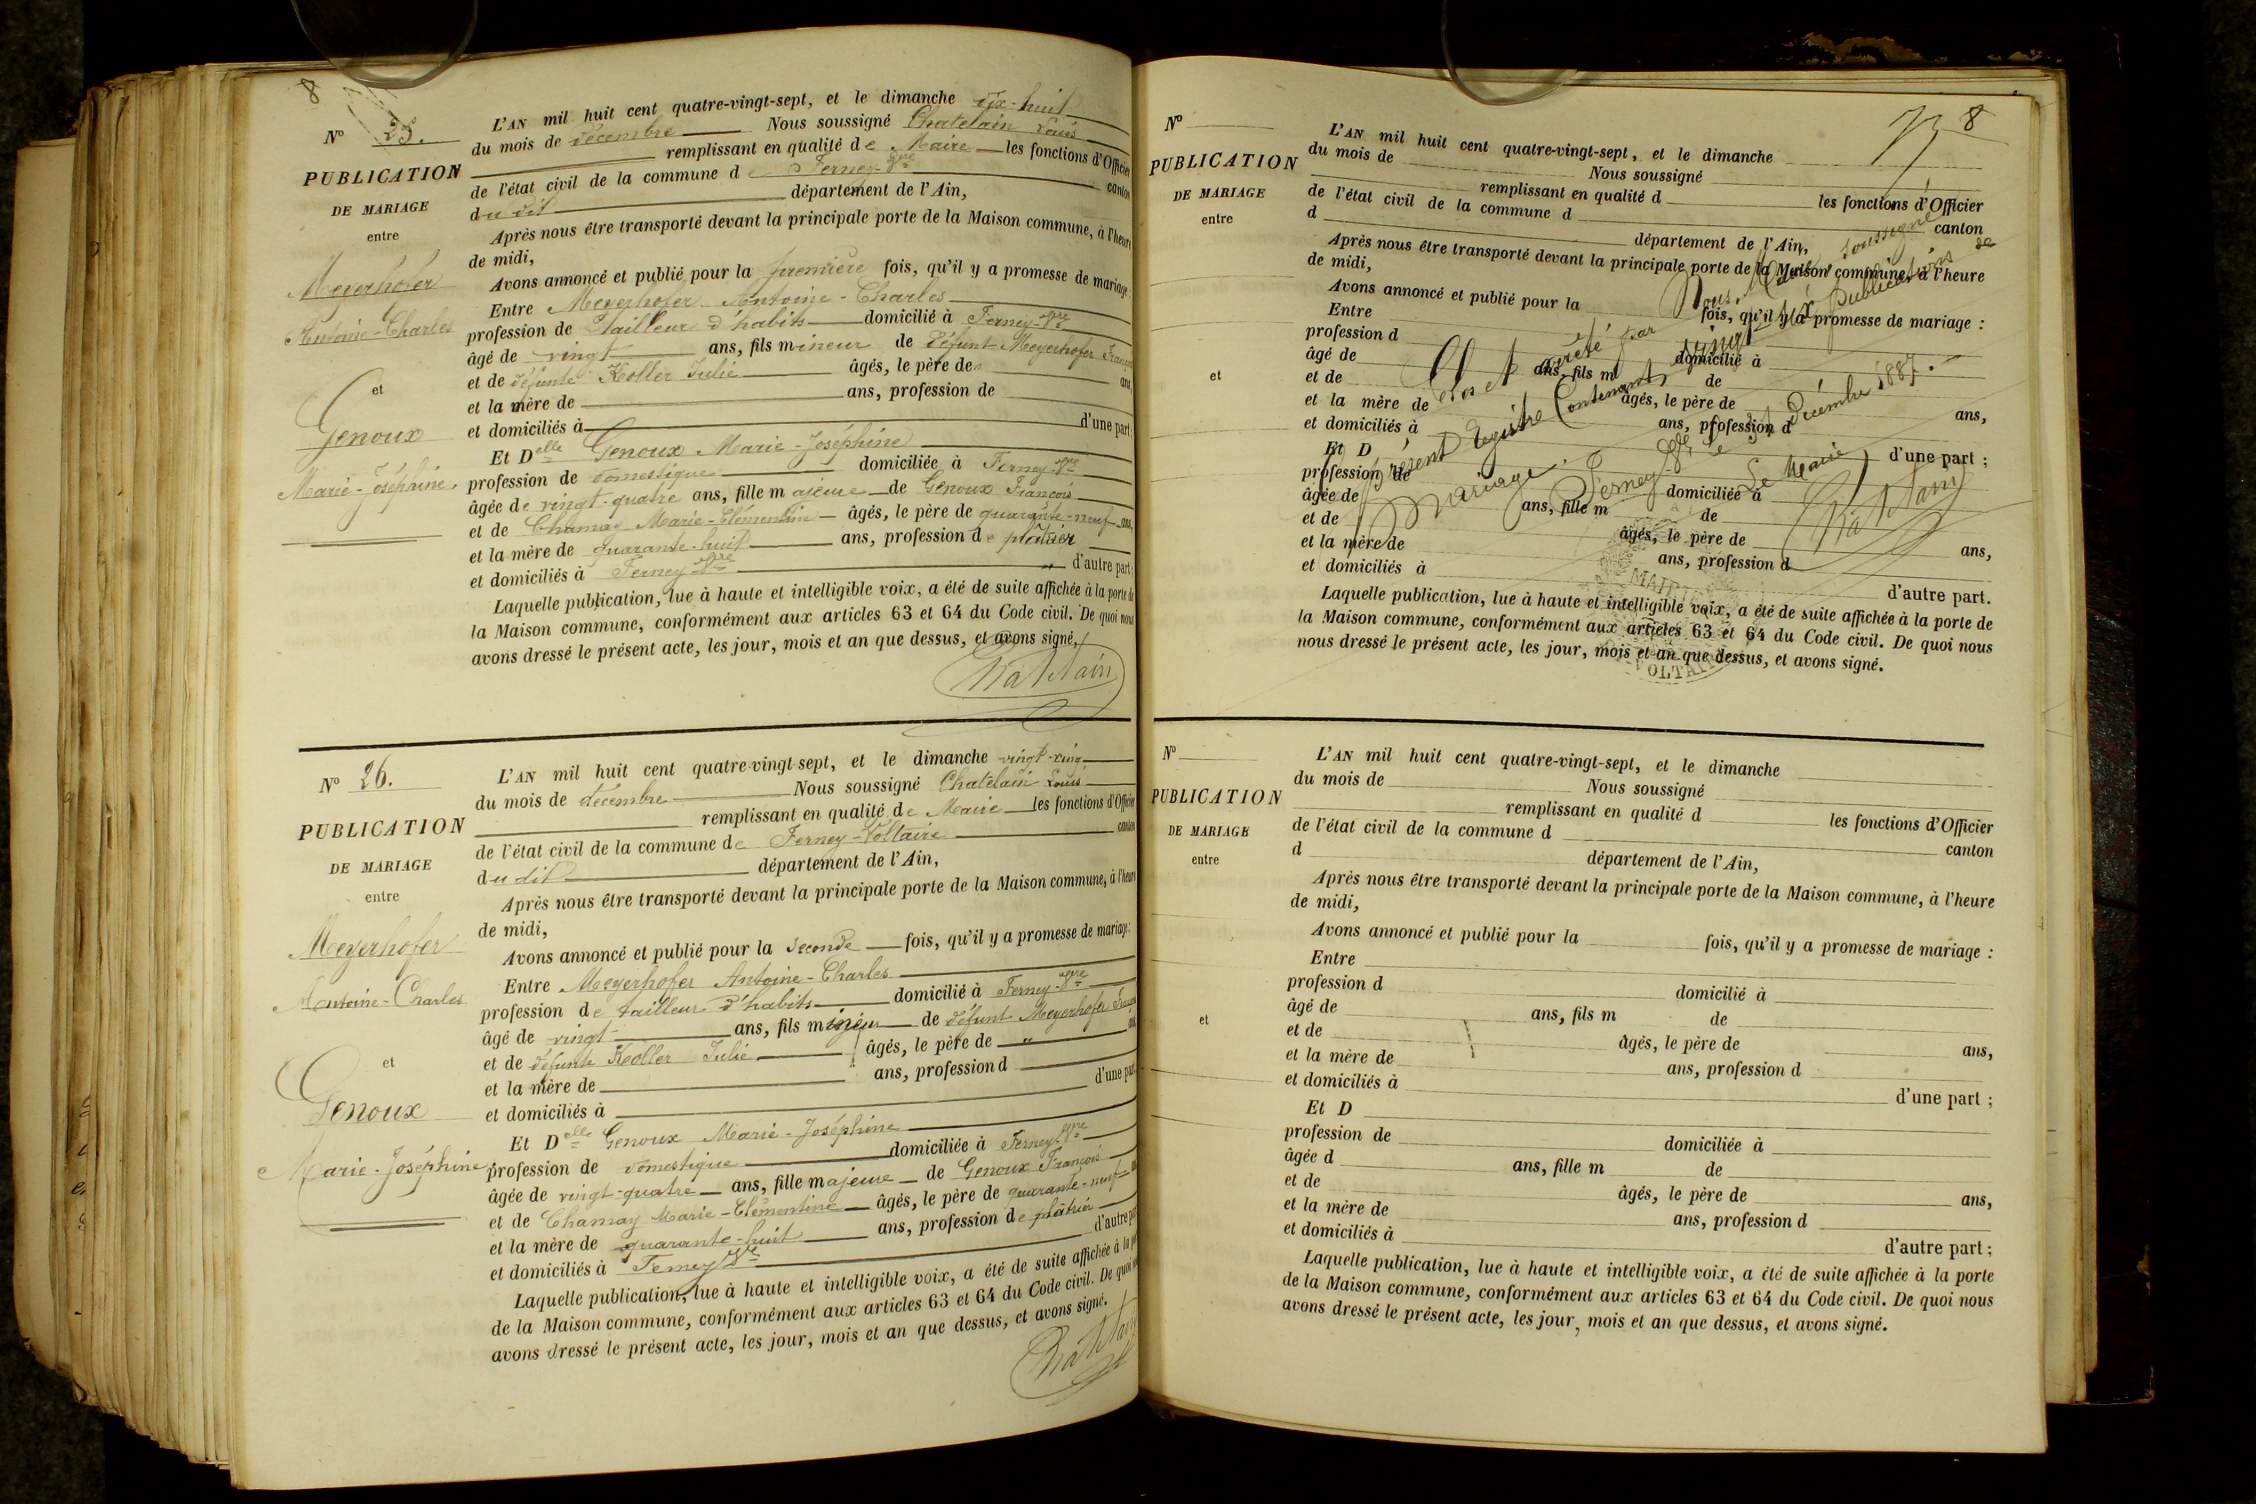 8
N° 25.
PUBLICATION
DE MARIAGE
entre
Meyerhofer
Antoine-Charles
et
Genoux
Marie-Joséphine
L'AN mil huit cent quatre-vingt-sept, et le dimanche dix-huit
du mois de décembre Nous soussigné Chatelain Louis
remplissant en qualité de Maire les fonctions d'Officier
de l'état civil de la commune de Ferney-Vre canton
du dit département de l'Ain,
Après nous être transporté devant la principale porte de la Maison commune, à l'heure
de midi,
Avons annoncé et publié pour la première fois, qu'il y a promesse de mariage :
Entre Meyerhofer Antoine-Charles
profession de tailleur d'habits domicilié à Ferney-Vre
âgé de vingt ans, fils mineur de défunt Meyerhofer François
et de défunte Koller Julie âgés, le père de ans,
et la mère de ans, profession de
et domiciliés à d'une part ;
Et Delle Genoux Marie-Joséphine
profession de domestique domiciliée à Ferney-Vre
âgée de vingt-quatre ans, fille majeure de Genoux François
et de Chamay Marie-Clémentine âgés, le père de quarante-neuf ans,
et la mère de quarante-huit ans, profession de plâtrier
et domiciliés à Ferney-Vre d'autre part ;
Laquelle publication, lue à haute et intelligible voix, a été de suite affichée à la porte de
la Maison commune, conformément aux articles 63 et 64 du Code civil. De quoi nous
avons dressé le présent acte, les jour, mois et an que dessus, et avons signé,
Chatelain
N° 26.
PUBLICATION
DE MARIAGE
entre
Meyerhofer
Antoine-Charles
et
Genoux
Marie-Joséphine
L'AN mil huit cent quatre-vingt-sept, et le dimanche vingt-cinq
du mois de décembre Nous soussigné Chatelain Louis
remplissant en qualité de Maire les fonctions d'Officier
de l'état civil de la commune de Ferney-Voltaire canton
du dit département de l'Ain,
Après nous être transporté devant la principale porte de la Maison commune, à l'heure
de midi,
Avons annoncé et publié pour la seconde fois, qu'il y a promesse de mariage :
Entre Meyerhofer Antoine-Charles
profession de tailleur d'habits domicilié à Ferney-Vre
âgé de vingt ans, fils mineur de défunt Meyerhofer François
et de défunte Koller Julie âgés, le père de " ans,
et la mère de ans, profession d
et domiciliés à d'une part
Et Delle Genoux Marie-Joséphine
profession de domestique domiciliée à Ferney-Vre
âgée de vingt-quatre ans, fille majeure de Genoux François
et de Chamay Marie-Clémentine âgés, le père de quarante-neuf ans
et la mère de quarante-huit ans, profession de plâtrier
et domiciliés à Ferney Vre d'autre part
Laquelle publication, lue à haute et intelligible voix, a été de suite affichée à la porte
de la Maison commune, conformément aux articles 63 et 64 du Code civil. De quoi nous
avons dressé le présent acte, les jour, mois et an que dessus, et avons signé.
Chatelain
8
N°
PUBLICATION
DE MARIAGE
entre
et
L'AN mil huit cent quatre-vingt-sept, et le dimanche
du mois de Nous soussigné
remplissant en qualité d les fonctions d'Officier
de l'état civil de la commune d canton
d département de l'Ain,
Après nous être transporté devant la principale porte de la Maison commune, à l'heure
de midi,
Avons annoncé et publié pour la fois, qu'il y a promesse de mariage :
Entre
profession d domicilié à
âgé de ans, fils m de
et de âgés, le père de ans,
et la mère de ans, profession d
et domiciliés à d'une part ;
Et D
profession de domiciliée à
âgée de ans, fille m de
et de âgés, le père de ans,
et la mère de ans, profession d
et domiciliés à d'autre part.
Laquelle publication, lue à haute et intelligible voix, a été de suite affichée à la porte de
la Maison commune, conformément aux articles 63 et 64 du Code civil. De quoi nous
nous dressé le présent acte, les jour, mois et an que dessus, et avons signé.
Clos et arrêté par Nous, Maire soussigné
le présent Registre Contenant vingt six publications de
mariage. Ferney Vre le 31 Décembre 1887.
Le Maire
Chatelain
MAIRIE
VOLTAIRE
N°
PUBLICATION
DE MARIAGE
entre
et
L'AN mil huit cent quatre-vingt-sept, et le dimanche
du mois de Nous soussigné
remplissant en qualité d les fonctions d'Officier
de l'état civil de la commune d canton
d département de l'Ain,
Après nous être transporté devant la principale porte de la Maison commune, à l'heure
de midi,
Avons annoncé et publié pour la fois, qu'il y a promesse de mariage :
Entre
profession d domicilié à
âgé de ans, fils m de
et de âgés, le père de ans,
et la mère de ans, profession d
et domiciliés à d'une part ;
Et D
profession de domiciliée à
âgée d ans, fille m de
et de âgés, le père de ans,
et la mère de ans, profession d
et domiciliés à d'autre part ;
Laquelle publication, lue à haute et intelligible voix, a été de suite affichée à la porte
de la Maison commune, conformément aux articles 63 et 64 du Code civil. De quoi nous
avons dressé le présent acte, les jour, mois et an que dessus, et avons signé.